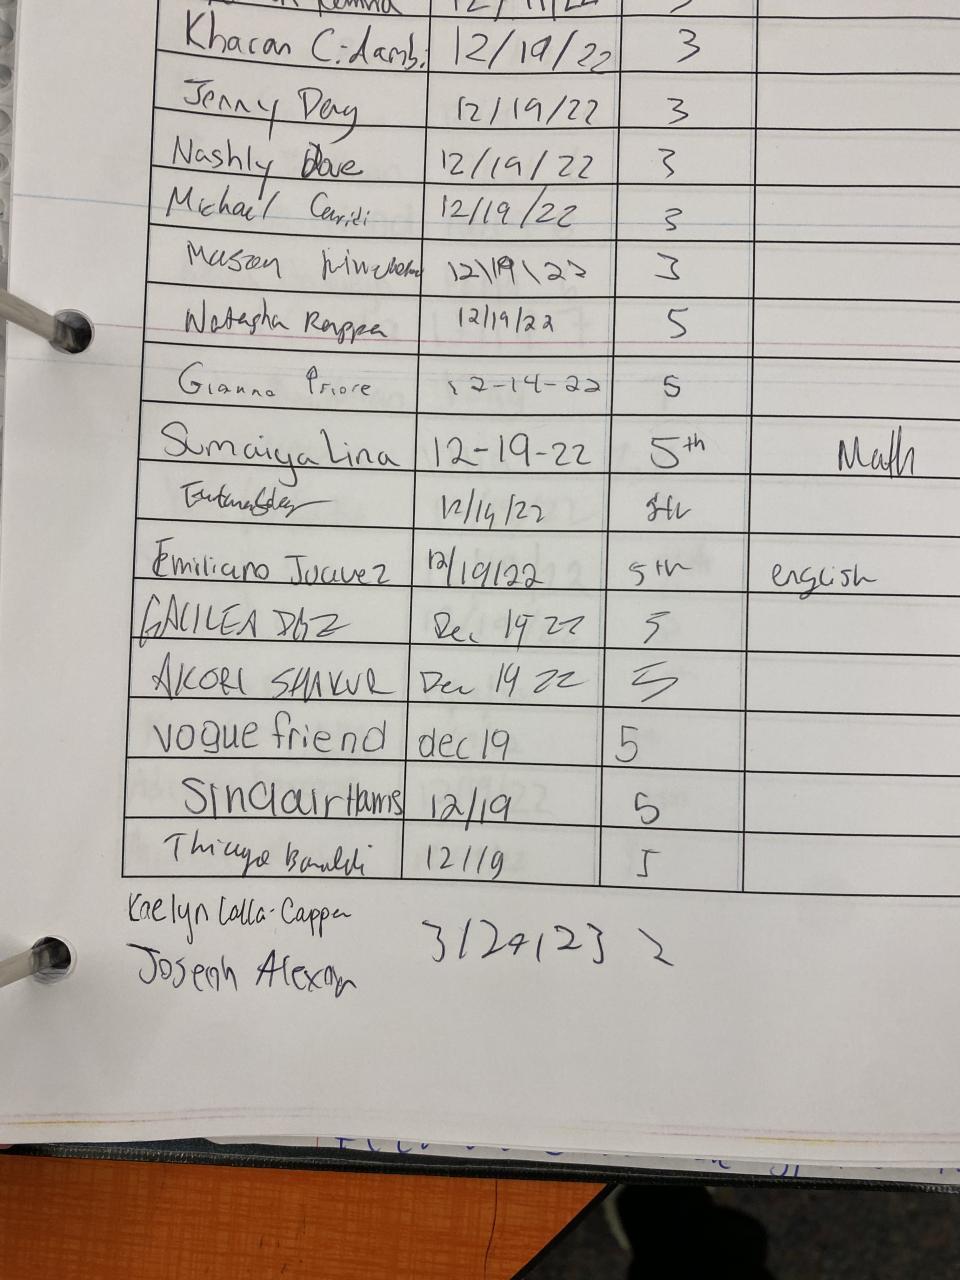 12/19/22 3
Khacan C. 12/19/22 3
Jenny Deng 12/19/22 3
Nashly 12/19/22 3
Michael 12/19/22 3
Mason 12/19/22 3
Natasha Rappa 12/19/22 5
Gianna Priore 12-14-22 5
Sumaiya Lina 12-19-22 5th Math
12/19/22 5th
Emiliano Juavez 12/19/22 5th english
GALILEA DIAZ Dec 19 22 5
AKORI SHAKUR Dec 19 22 5
vogue friend dec 19 5
Sinclair Harris 12/19 5
Thiago 12/19 5
Kaelyn Lalla-Cappen
Joseph 3/29/23 2